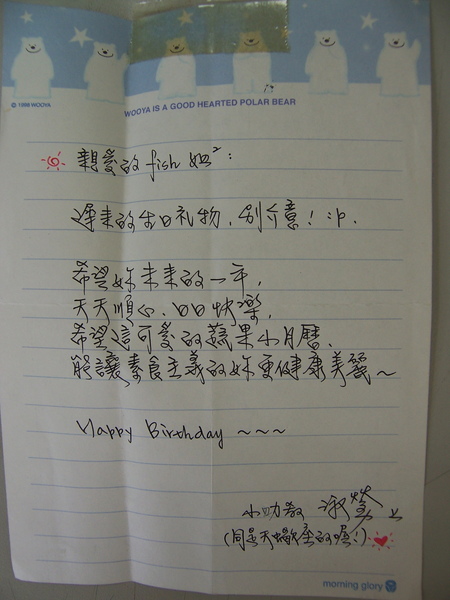 © 1998 WOOYA
WOOYA IS A GOOD HEARTED POLAR BEAR
親愛的 fish 姐²:
遲來的生日礼物,別介意! :p.
希望妳未來的一年,
天天順心、日日快樂,
希望這可愛的蔬果小月曆,
能讓素食主義的妳更健康美麗~
Happy Birthday ~~~
小助教 淑 上
(同是天蠍座的喔!)
morning glory